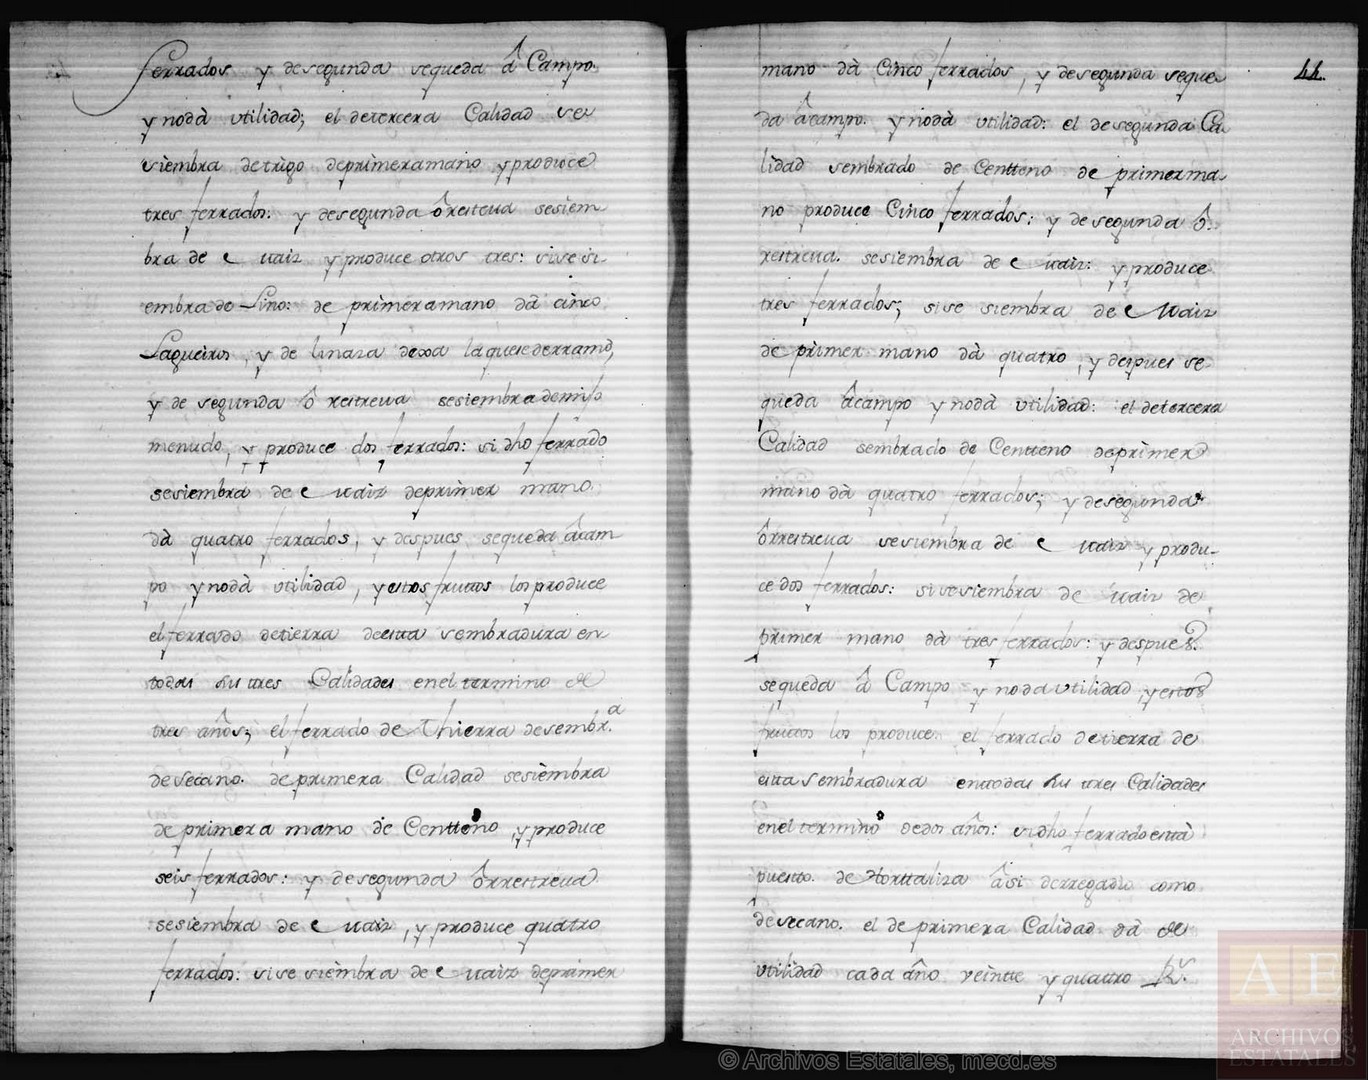 ferrados y desegunda sequeda â Campo.
y nodà vtilidad; el detercera Calidad se
siembra detrigo deprimeramano yproduce
tres ferrados: y desegunda ôrestreua sesiem
bra de Maiz yproduce otros tres: sisesi
embra de Lino: de primeramano dà cinco
Lagueiros, y de linaza dexa laquesederramò,
y de segunda ô restreua sesiembra demijo
menudo, y produce dos ferrados: si dho ferrado
sesiembra de Maiz deprimer mano.
dà quatro ferrados, y despues sequeda âcam
po ynodà vtilidad, yestos fruttos losproduce
elferrado detierra deesta sembradura en
todas sus tres Calidades enel termino de
tres años; elferrado de thierra desembr.ª
desecano. deprimera Calidad sesiembra
de primera mano de Centteno, yproduce
seis ferrados: y desegunda ôrrestreua
sesiembra de Maiz, yproduce quatro
ferrados: sise siembra de Maiz deprimer
44.
mano dà Cinco ferrados, y desegunda seque
da âcampo. ynodà vtilidad: el desegunda Ca
lidad sembrado de Centteno de primerma-
no produce Cinco ferrados: y desegunda ô.
restreua. sesiembra de Maiz: yproduce
tres ferrados; sise siembra de Maiz
de primer mano dà quatro, y despues se
queda âcampo ynodà vtilidad: el detercera
Calidad sembrado de Centteno deprimer
mano dà quatro ferrados; y desegunda
ôrrestreua sesiembra de Maiz yprodu-
ce dos ferrados: sisesiembra de Maiz de
primer mano dà tres ferrados: y despues.
sequeda â Campo y nodavtilidad, yestos
fruttos los produce el ferrado detierra de
esta sembradura entodas sus tres Calidades
enel termino dedos años: sidho ferradoestà
puesto. de Horttaliza âsi derregadio como
desecano. el de primera Calidad dà de
vtilidad cada âno veintte y quattro R.s
AE
ARCHIVOS
ESTATALES
© Archivos Estatales, mecd.es